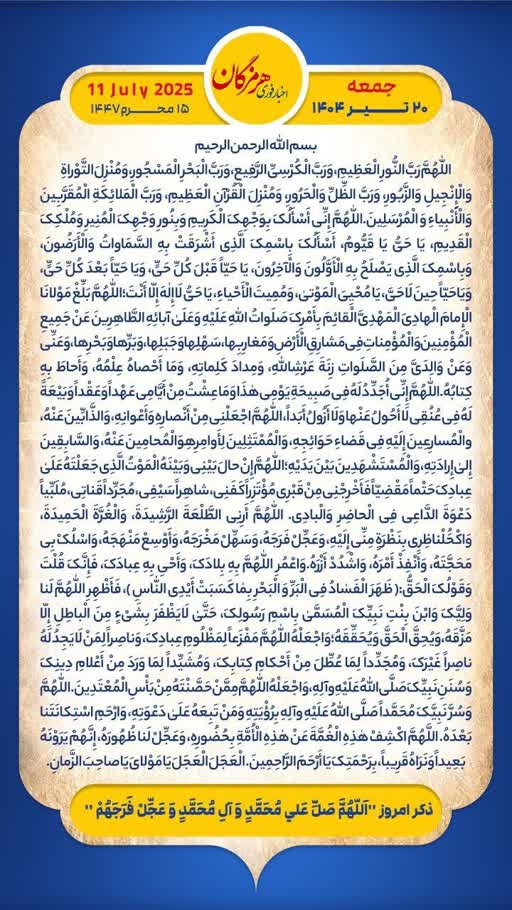 جمعه
۲۰ تـــیـــر ۱۴۰۴
اخبار فوری هرمزگان
11 July 2025
۱۵ محـــرم ۱۴۴۷
بسم الله الرحمن الرحیم
اللهُمَّ رَبَّ النُّورِ الْعَظِیمِ، وَرَبَّ الْکُرْسِیِّ الرَّفِیعِ، وَرَبَّ الْبَحْرِ الْمَسْجُورِ، وَمُنْزِلَ التَّوْراةِ
وَالْإِنْجِیلِ وَالزَّبُورِ، وَرَبَّ الظِّلِّ وَالْحَرُورِ، وَمُنْزِلَ الْقُرْآنِ الْعَظِیمِ، وَرَبَّ الْمَلائِکَةِ الْمُقَرَّبِینَ
وَالْأَنْبِیاءِ وَ الْمُرْسَلِینَ.اللهُمَّ إِنِّی أَسْأَلُکَ بِوَجْهِکَ الْکَرِیمِ وَبِنُورِ وَجْهِکَ الْمُنِیرِ وَمُلْکِکَ
الْقَدِیمِ، یا حَیُّ یا قَیُّومُ، أَسْأَلُکَ بِاسْمِکَ الَّذِی أَشْرَقَتْ بِهِ السَّماواتُ وَالْأَرَضُونَ،
وَبِاسْمِکَ الَّذِی یَصْلَحُ بِهِ الْأَوَّلُونَ وَالْآخِرُونَ، یا حَیّاً قَبْلَ کُلِّ حَیٍّ، وَیا حَیّاً بَعْدَ کُلِّ حَیٍّ،
وَیا حَیّاً حِینَ لَا حَیَّ، یا مُحْیِیَ الْمَوْتیٰ، وَمُمِیتَ الْأَحْیاءِ، یا حَیُّ لَا إِلهَ إِلّا أَنْتَ؛اللهُمَّ بَلِّغْ مَوْلانَا
الْإِمامَ الْهادِیَ الْمَهْدِیَّ الْقائِمَ بِأَمْرِکَ صَلَواتُ اللهِ عَلَیْهِ وَعَلَی آبائِهِ الطَّاهِرِینَ عَنْ جَمِیعِ
الْمُؤْمِنِینَ وَالْمُؤْمِناتِ فِی مَشارِقِ الْأَرْضِ وَمَغارِبِها، سَهْلِها وَجَبَلِها، وَبَرِّها وَبَحْرِها، وَعَنِّی
وَعَنْ والِدَیَّ مِنَ الصَّلَواتِ زِنَةَ عَرْشِ اللهِ، وَمِدادَ کَلِماتِهِ، وَمَا أَحْصاهُ عِلْمُهُ، وَأَحاطَ بِهِ
کِتابُهُ.اللهُمَّ إِنِّی أُجَدِّدُ لَهُ فِی صَبِیحَةِ یَوْمِی هذَا وَمَا عِشْتُ مِنْ أَیَّامِی عَهْداً وَعَقْداً وَبَیْعَةً
لَهُ فِی عُنُقِی لَا أَحُولُ عَنْها وَلَا أَزُولُ أَبَداً، اللهُمَّ اجْعَلْنِی مِنْ أَنْصارِهِ وَأَعْوانِهِ، وَالذَّابِّینَ عَنْهُ،
والْمُسارِعِینَ إِلَیْهِ فِی قَضاءِ حَوائِجِهِ، وَالْمُمْتَثِلِینَ لِأَوامِرِهِ وَالْمُحامِینَ عَنْهُ، وَالسَّابِقِینَ
إِلیٰ إِرادَتِهِ، وَالْمُسْتَشْهَدِینَ بَیْنَ یَدَیْهِ؛اللهُمَّ إِنْ حالَ بَیْنِی وَبَیْنَهُ الْمَوْتُ الَّذِی جَعَلْتَهُ عَلیٰ
عِبادِکَ حَتْماً مَقْضِیّاً فَأَخْرِجْنِی مِنْ قَبْرِی مُؤْتَزِراً کَفَنِی، شاهِراً سَیْفِی، مُجَرِّداً قَناتِی، مُلَبِّیاً
دَعْوَةَ الدَّاعِی فِی الْحاضِرِ وَالْبادِی. اللهُمَّ أَرِنِی الطَّلْعَةَ الرَّشِیدَةَ، وَالْغُرَّةَ الْحَمِیدَةَ،
وَاکْحُلْ ناظِرِی بِنَظْرَةٍ مِنِّی إِلَیْهِ، وَعَجِّلْ فَرَجَهُ، وَسَهِّلْ مَخْرَجَهُ، وَأَوْسِعْ مَنْهَجَهُ، وَاسْلُکْ بِی
مَحَجَّتَهُ، وَأَنْفِذْ أَمْرَهُ، وَاشْدُدْ أَزْرَهُ، وَاعْمُرِ اللهُمَّ بِهِ بِلادَکَ، وَأَحْیِ بِهِ عِبادَکَ، فَإِنَّکَ قُلْتَ
وَقَوْلُکَ الْحَقُّ:( ظَهَرَ الْفَسادُ فِی الْبَرِّ وَ الْبَحْرِ بِمٰا کَسَبَتْ أَیْدِی النّٰاسِ )، فَأَظْهِرِ اللهُمَّ لَنا
وَلِیَّکَ وَابْنَ بِنْتِ نَبِیِّکَ الْمُسَمَّیٰ بِاسْمِ رَسُولِکَ، حَتَّیٰ لَا یَظْفَرَ بِشَیْءٍ مِنَ الْباطِلِ إِلّا
مَزَّقَهُ، وَیُحِقَّ الْحَقَّ وَیُحَقِّقَهُ؛وَاجْعَلْهُ اللهُمَّ مَفْزَعاً لِمَظْلُومِ عِبادِکَ، وَناصِراً لِمَنْ لَا یَجِدُ لَهُ
ناصِراً غَیْرَکَ، وَمُجَدِّداً لِمَا عُطِّلَ مِنْ أَحْکامِ کِتابِکَ، وَمُشَیِّداً لِمَا وَرَدَ مِنْ أَعْلامِ دِینِکَ
وَسُنَنِ نَبِیِّکَ صَلَّی اللهُ عَلَیْهِ وَآلِهِ، وَاجْعَلْهُ اللهُمَّ مِمَّنْ حَصَّنْتَهُ مِنْ بَأْسِ الْمُعْتَدِینَ.اللهُمَّ
وَسُرَّ نَبِیَّکَ مُحَمَّداً صَلَّی اللهُ عَلَیْهِ وَآلِهِ بِرُؤْیَتِهِ وَمَنْ تَبِعَهُ عَلَیٰ دَعْوَتِهِ، وَارْحَمِ اسْتِکانَتَنا
بَعْدَهُ. اللهُمَّ اکْشِفْ هٰذِهِ الْغُمَّةَ عَنْ هٰذِهِ الْأُمَّةِ بِحُضُورِهِ، وَعَجِّلْ لَنا ظُهُورَهُ، إِنَّهُمْ یَرَوْنَهُ
بَعِیداً وَنَرَاهُ قَرِیباً، بِرَحْمَتِکَ یَا أَرْحَمَ الرَّاحِمِینَ. الْعَجَلَ الْعَجَلَ یَا مَوْلایَ یَا صاحِبَ الزَّمانِ.
ذکر امروز "اَللّهُمَّ صَلِّ عَلي مُحَمَّدٍ وَ آلِ مُحَمَّدٍ وَ عَجِّلْ فَرَجَهُمْ "